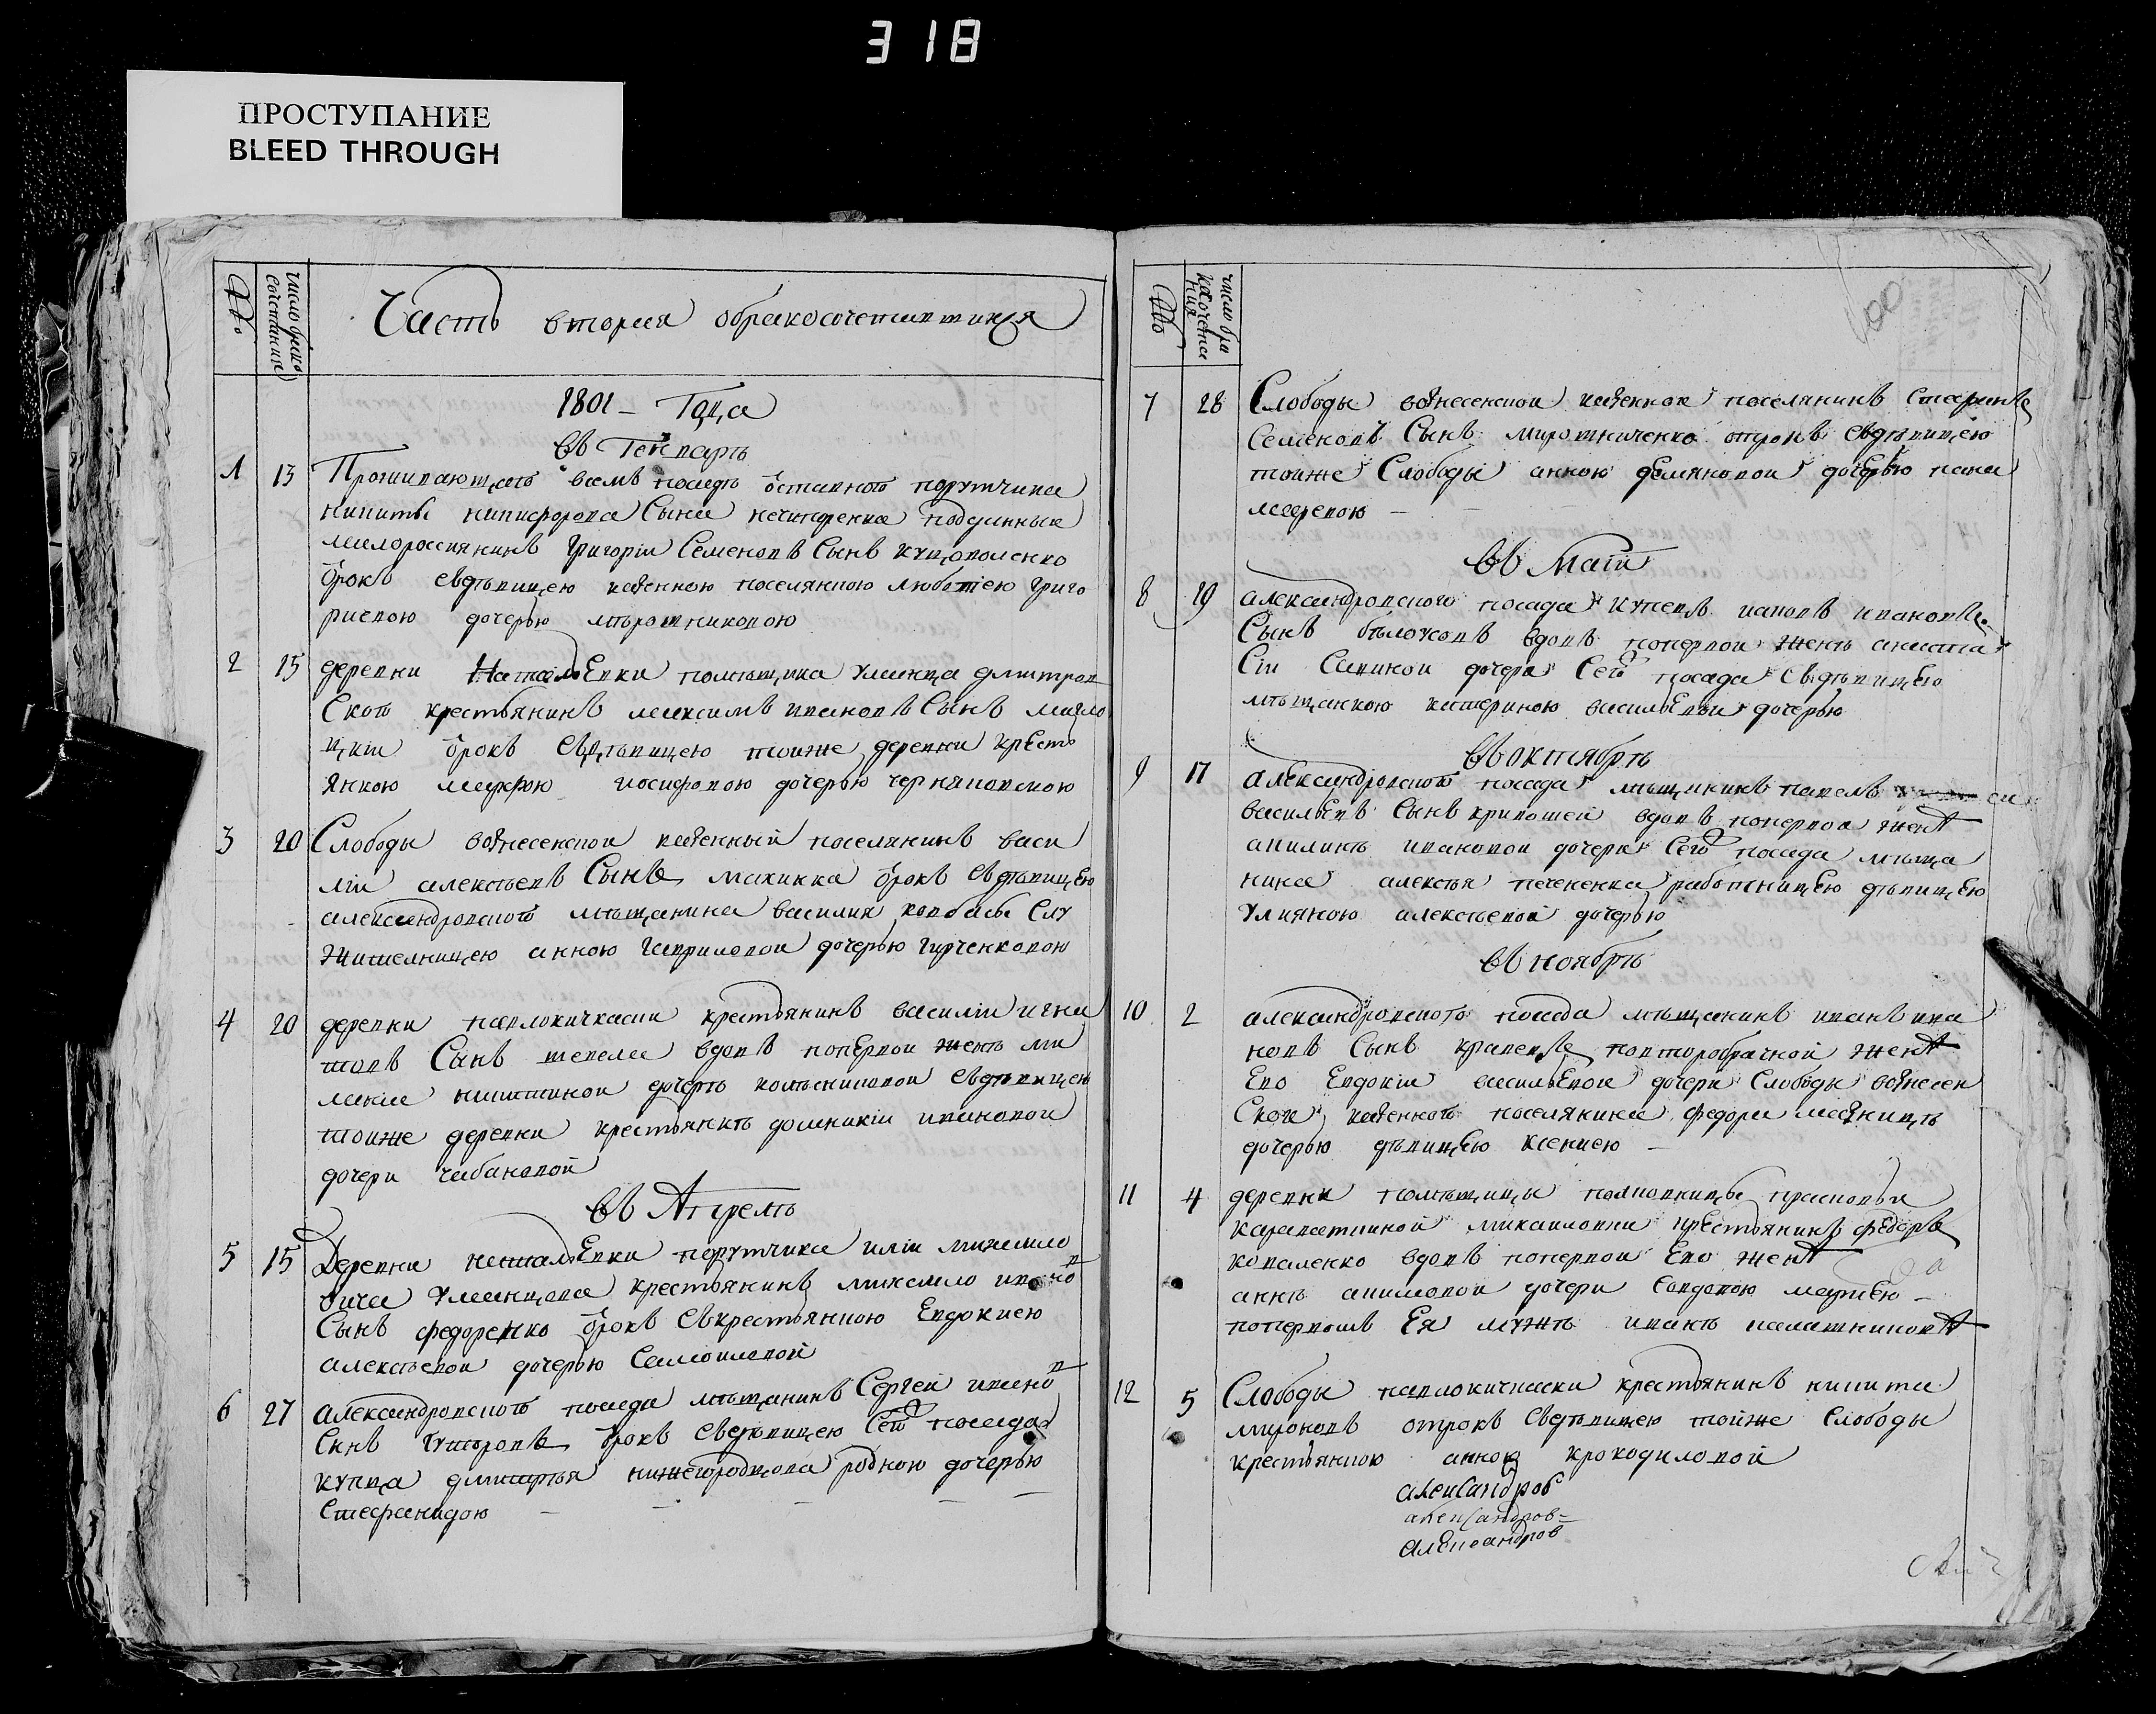 318
ПРОСТУПАНИЕ
BLEED THROUGH
№
число брако
сочетания
Часть вторая обракосочетавшихся
1801 - Года
въ Генваръ
1 13 Проживающаго въ семъ посадъ отставного порутчика
никиты никифорова Сына нечипоренка подданный
малороссиянинъ Григорiи Семеновъ Сынъ куцоволенко
отрокъ съдъвицею казенною поселянкою любовiею григо
риевою дочерью мърошниковою
2 15 деревни НатальЕвки помъщика Уманца дмитров
Скаго крестьянинъ максимъ ивановъ Сынъ
цкiи отрокъ съдъвицею тоиже деревни крЕсть
янкою марфою иосифовою дочерью черняновскою
3 20 Слободы вознесенскои казенный поселянинъ васи
лiи алексъевъ Сынъ махинка отрокъ съдъвицЕю
александровского мъщанина василия ковбасы Слу
жителницею анною Гавриловои дочерью гирченковою
4 20 деревни павлокичкасии крестьянинъ василiи игна
товъ Сынъ шепела вдовъ попЕрвои женъ ма
ланiи никитинои дочеръ колъсниковои съдъвицею
тоиже деревни крестьянкъ домникiи ивановои
дочери чабановой
въ Апрелъ
5 15 Деревни натальЕвки порутчика илiи михаило
вича Уманцова крестьянинъ михаило ивано в
Сынъ федоренко отрокъ съкрестьянкою Евдокиею
алексъевои дочерью Самоиловой
6 27 александровского посада мъщанинъ Сергеи ивано в
Сынъ отрокъ съдъвицею Сего посада
купца дмитрiя нижегородцова родною дочерью
Стефанидою
№
число бра
косочета
ния
100
7 28 Слободы вознесенскои казеннои поселянинъ
Семеновъ Сынъ мирошниченко отрокъ съдъвицею
тоиже Слободы анною демяновои дочерью
маревою
въ Маiи
8 19 александровского посада купецъ ивановъ
Сынъ бълоусовъ вдовъ попервои женъ анаста
сiи Савинои дочери Сего посада съдъвицЕю
мъщанкою катериною васильЕвои дочерью
въ октябръ
9 17 александровского посада мъщанинъ павелъ
васильЕвъ Сынъ кривошеи вдовъ поперво женъ
акилинъ ивановои дочери Сего посада мъща
нина алексъя печененка работницЕю дъвицЕю
Улияною алексъевой дочерью
въ ноябръ
10 2 александровского посада мъщанинъ иванъ ива
новъ Сынъ повторобрачной женъ
Ево Евдокiи васильЕвои дочери Слободы вознесен
Скои казенного поселянина федора
дочерью дъвицЕю ксениею
11 4 деревни помъщицы полковницы
михаиловни крЕстьянинъ федоръ
коваленко вдовъ поперво Ево женъ
аннъ акимовои дочери Совдовою
поперво Ея мужъ иванъ
12 5 Слободы павлокичкаски крестьянинъ никита
мироновъ отрокъ съдъвицею тойже Слободы
крестьянкою анною крокодиловой
алеиСандров
алеиСандров
алЕисандров